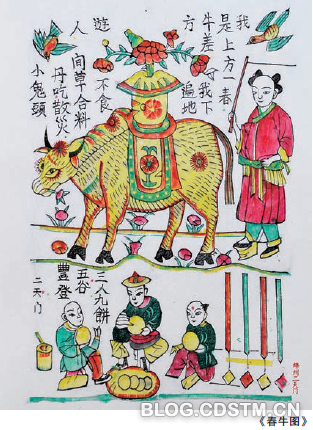 我是上方一春
牛差我下
方遍地
遊不食
人間草合料
丹吃散災
小鬼頭
三人九餅
五谷
豐登
二天门
BLOG.CDSTM.CN
《春牛图》